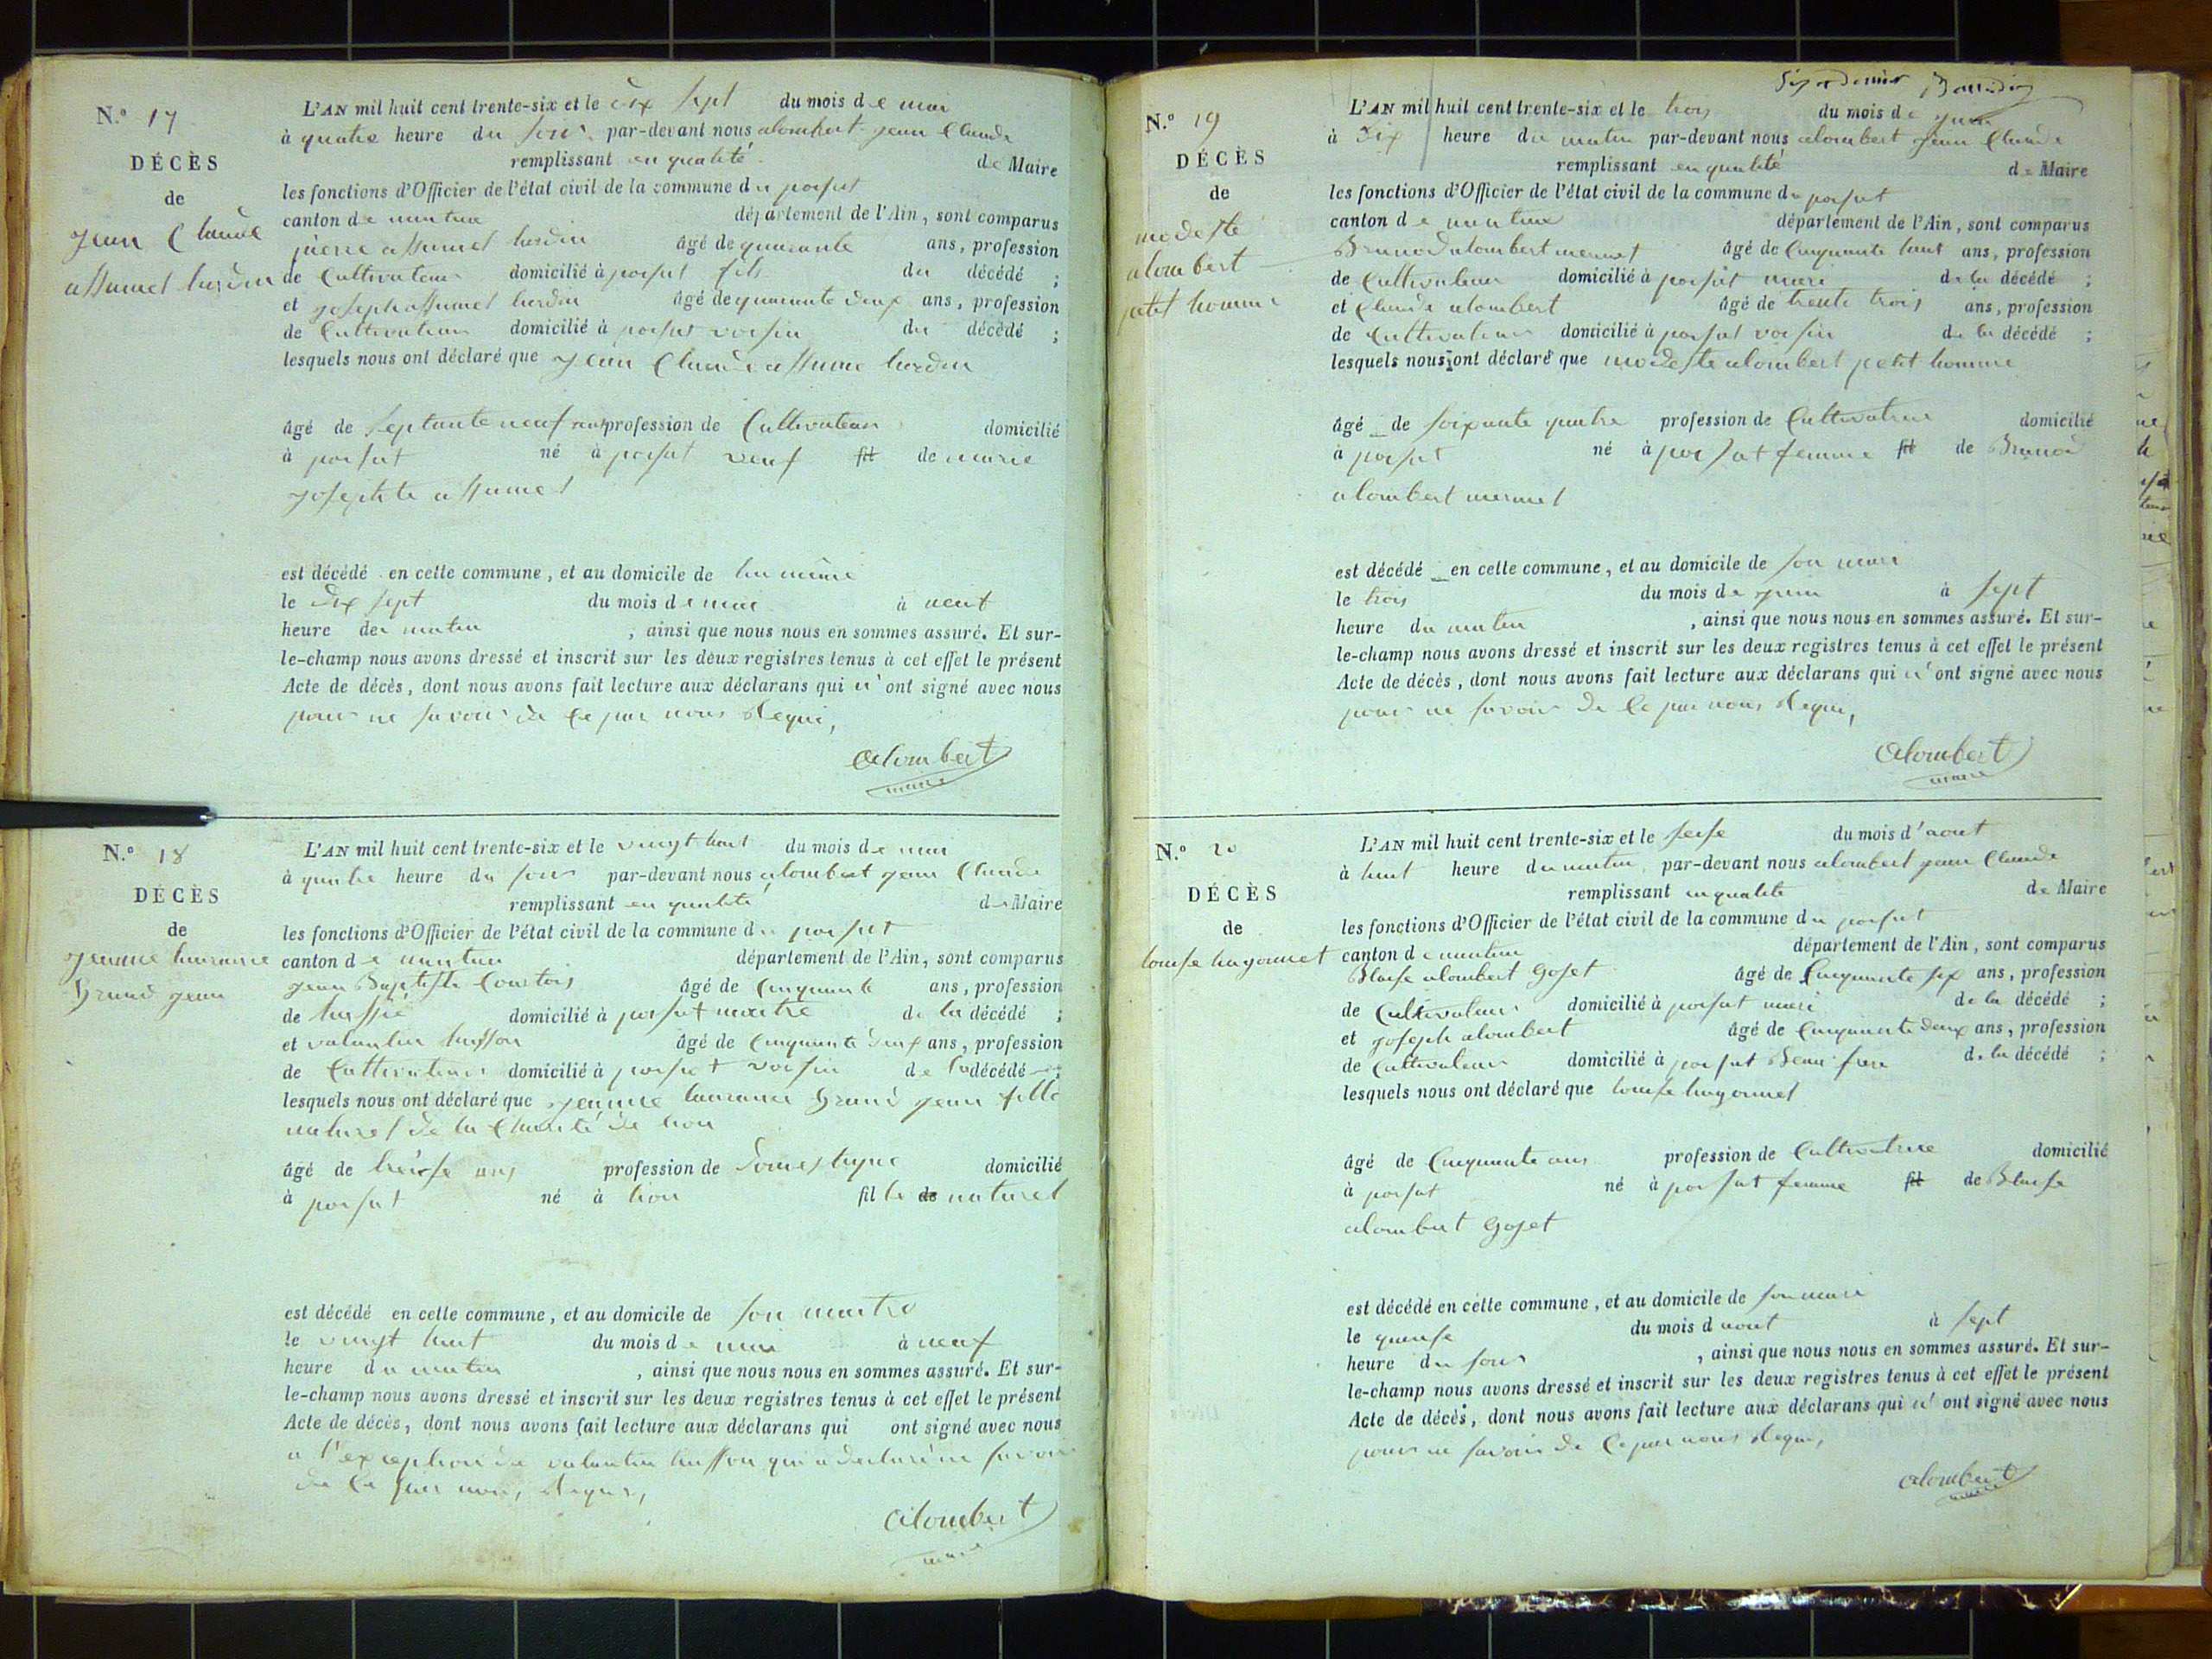 N.º 17
DÉCÈS
de
jean Claude
assumel lurdin
L'AN mil huit cent trente-six et le dix sept du mois de mai
à quatre heure du soir par-devant nous alombert jean Claude
remplissant en qualité de Maire
les fonctions d'Officier de l'état civil de la commune du poisat
canton de nantua département de l'Ain, sont comparus
pierre assumel lurdin âgé de quarante ans, profession
de Cultivateur domicilié à poisat fils du décédé ;
et joseph assumel lurdin âgé de quarante deux ans, profession
de Cultivateur domicilié à poisat voisin du décédé ;
lesquels nous ont déclaré que jean Claude assume lurdin
âgé de septante neuf ans profession de Cultivateur domicilié
à poisat né à poisat veuf fil de marie
josephte assumel
est décédé en cette commune, et au domicile de lui même
le dix sept du mois de mai à neuf
heure du matin , ainsi que nous nous en sommes assuré. Et sur-
le-champ nous avons dressé et inscrit sur les deux registres tenus à cet effet le présent
Acte de décès, dont nous avons fait lecture aux déclarans qui n'ont signé avec nous
pour ne savoir de ce par nous Requi,
alombert
maire
N.º 18
DÉCÈS
de
jeanne laurance
Grand jean
L'AN mil huit cent trente-six et le vingt huit du mois de mai
à quatre heure du soir par-devant nous alombert jean Claude
remplissant en qualité de Maire
les fonctions d'Officier de l'état civil de la commune du poisat
canton de nantua département de l'Ain, sont comparus
jean Baptiste Courtois âgé de Cinquante ans, profession
de domicilié à poisat maitre de la décédé ;
et valantin husson âgé de Cinquante deux ans, profession
de Cultivateur domicilié à poisat voisin de la décédé ;
lesquels nous ont déclaré que jeanne laurance Grand jean fille
naturel de la Charité de lion
âgé de treise ans profession de Domestique domicilié
à poisat né à lion fil le de naturel
est décédé en cette commune, et au domicile de son maitre
le vingt huit du mois de mai à neuf
heure du matin , ainsi que nous nous en sommes assuré. Et sur-
le-champ nous avons dressé et inscrit sur les deux registres tenus à cet effet le présent
Acte de décès, dont nous avons fait lecture aux déclarans qui ont signé avec nous
a l'exception de valantin husson qui a declaré ne savoir
de ce par nous Requis,
alombert
maire
N.º 19
DÉCÈS
de
modeste
alombert
petit homme
L'AN mil huit cent trente-six et le trois du mois de juin
à dix heure du matin par-devant nous alombert jean Claude
remplissant en qualité de Maire
les fonctions d'Officier de l'état civil de la commune du poisat
canton de nantua département de l'Ain, sont comparus
Brunod alombert mermet âgé de Cinquante huit ans, profession
de Cultivateur domicilié à poisat mari de la décédé ;
et Claude alombert âgé de trente trois ans, profession
de Cultivateur domicilié à poisat voisin de la décédé ;
lesquels nous ont déclaré que modeste alombert petit homme
âgé de soixante quatre profession de Cultivatrice domicilié
à poisat né à poisat femme fil de Brunod
alombert mermet
est décédé en cette commune, et au domicile de son mari
le trois du mois de juin à sept
heure du matin , ainsi que nous nous en sommes assuré. Et sur-
le-champ nous avons dressé et inscrit sur les deux registres tenus à cet effet le présent
Acte de décès, dont nous avons fait lecture aux déclarans qui n'ont signé avec nous
pour ne savoir de ce par nous Requi,
alombert
maire
N.º 20
DÉCÈS
de
louise hugonnet
L'AN mil huit cent trente-six et le seise du mois d'aout
à huit heure du matin par-devant nous alombert jean Claude
remplissant en qualité de Maire
les fonctions d'Officier de l'état civil de la commune du poisat
canton de nantua département de l'Ain, sont comparus
Blaise alombert Goget âgé de Cinquante six ans, profession
de Cultivateur domicilié à poisat mari de la décédé ;
et joseph alombert âgé de Cinquante deux ans, profession
de Cultivateur domicilié à poisat Beau frere de la décédé ;
lesquels nous ont déclaré que louise hugonnet
âgé de Cinquante ans profession de Cultivatrice domicilié
à poisat né à poisat femme fil de Blaise
alombert Goget
est décédé en cette commune, et au domicile de son mari
le quinse du mois d aout à sept
heure du soir , ainsi que nous nous en sommes assuré. Et sur-
le-champ nous avons dressé et inscrit sur les deux registres tenus à cet effet le présent
Acte de décès, dont nous avons fait lecture aux déclarans qui n'ont signé avec nous
pour ne savoir de ce par nous Requi,
alombert
maire